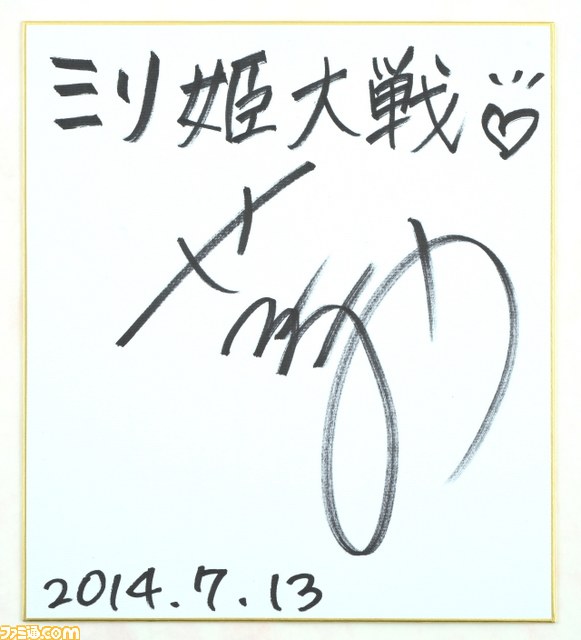 ミリ姫大戦♡
2014.7.13
ファミ通.com